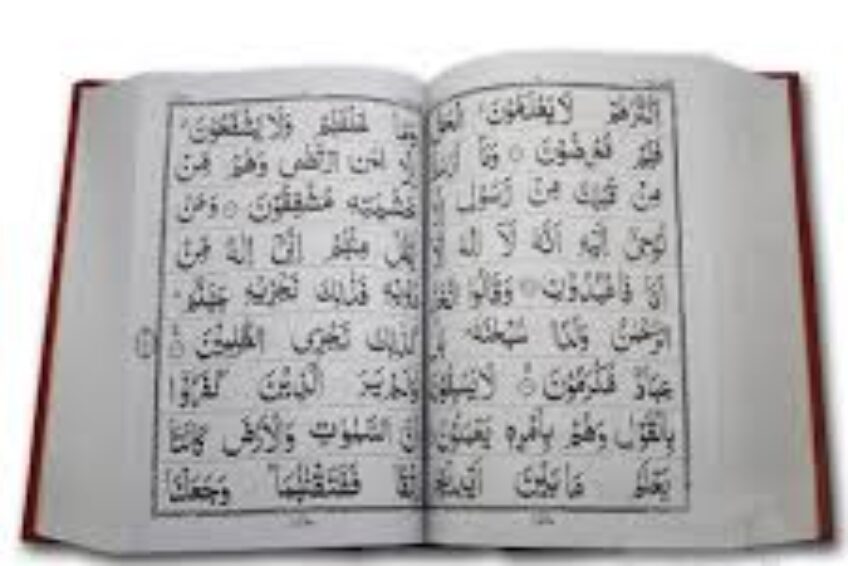 اَكْثَرُهُمْ لَا يَعْلَمُوْنَ الْحَقَّ
فَهُمْ مُّعْرِضُوْنَ ۝ وَمَآ اَرْسَلْنَا
مِنْ قَبْلِكَ مِنْ رَّسُوْلٍ اِلَّا
نُوْحِيْٓ اِلَيْهِ اَنَّهٗ لَآ اِلٰهَ اِلَّآ
اَنَا فَاعْبُدُوْنِ ۝ وَقَالُوا اتَّخَذَ
الرَّحْمٰنُ وَلَدًا سُبْحٰنَهٗ بَلْ
عِبَادٌ مُّكْرَمُوْنَ ۝ لَا يَسْبِقُوْنَهٗ
بِالْقَوْلِ وَهُمْ بِاَمْرِهٖ يَعْمَلُوْنَ
يَعْلَمُ مَا بَيْنَ اَيْدِيْهِمْ
وَمَا خَلْفَهُمْ وَلَا يَشْفَعُوْنَ
اِلَّا لِمَنِ ارْتَضٰى وَهُمْ مِّنْ
خَشْيَتِهٖ مُشْفِقُوْنَ ۝ وَمَنْ
يَّقُلْ مِنْهُمْ اِنِّيْٓ اِلٰهٌ مِّنْ
دُوْنِهٖ فَذٰلِكَ نَجْزِيْهِ جَهَنَّمَ
كَذٰلِكَ نَجْزِى الظّٰلِمِيْنَ ۝
اَوَلَمْ يَرَ الَّذِيْنَ كَفَرُوْٓا
اَنَّ السَّمٰوٰتِ وَالْاَرْضَ كَانَتَا
رَتْقًا فَفَتَقْنٰهُمَا وَجَعَلْنَا